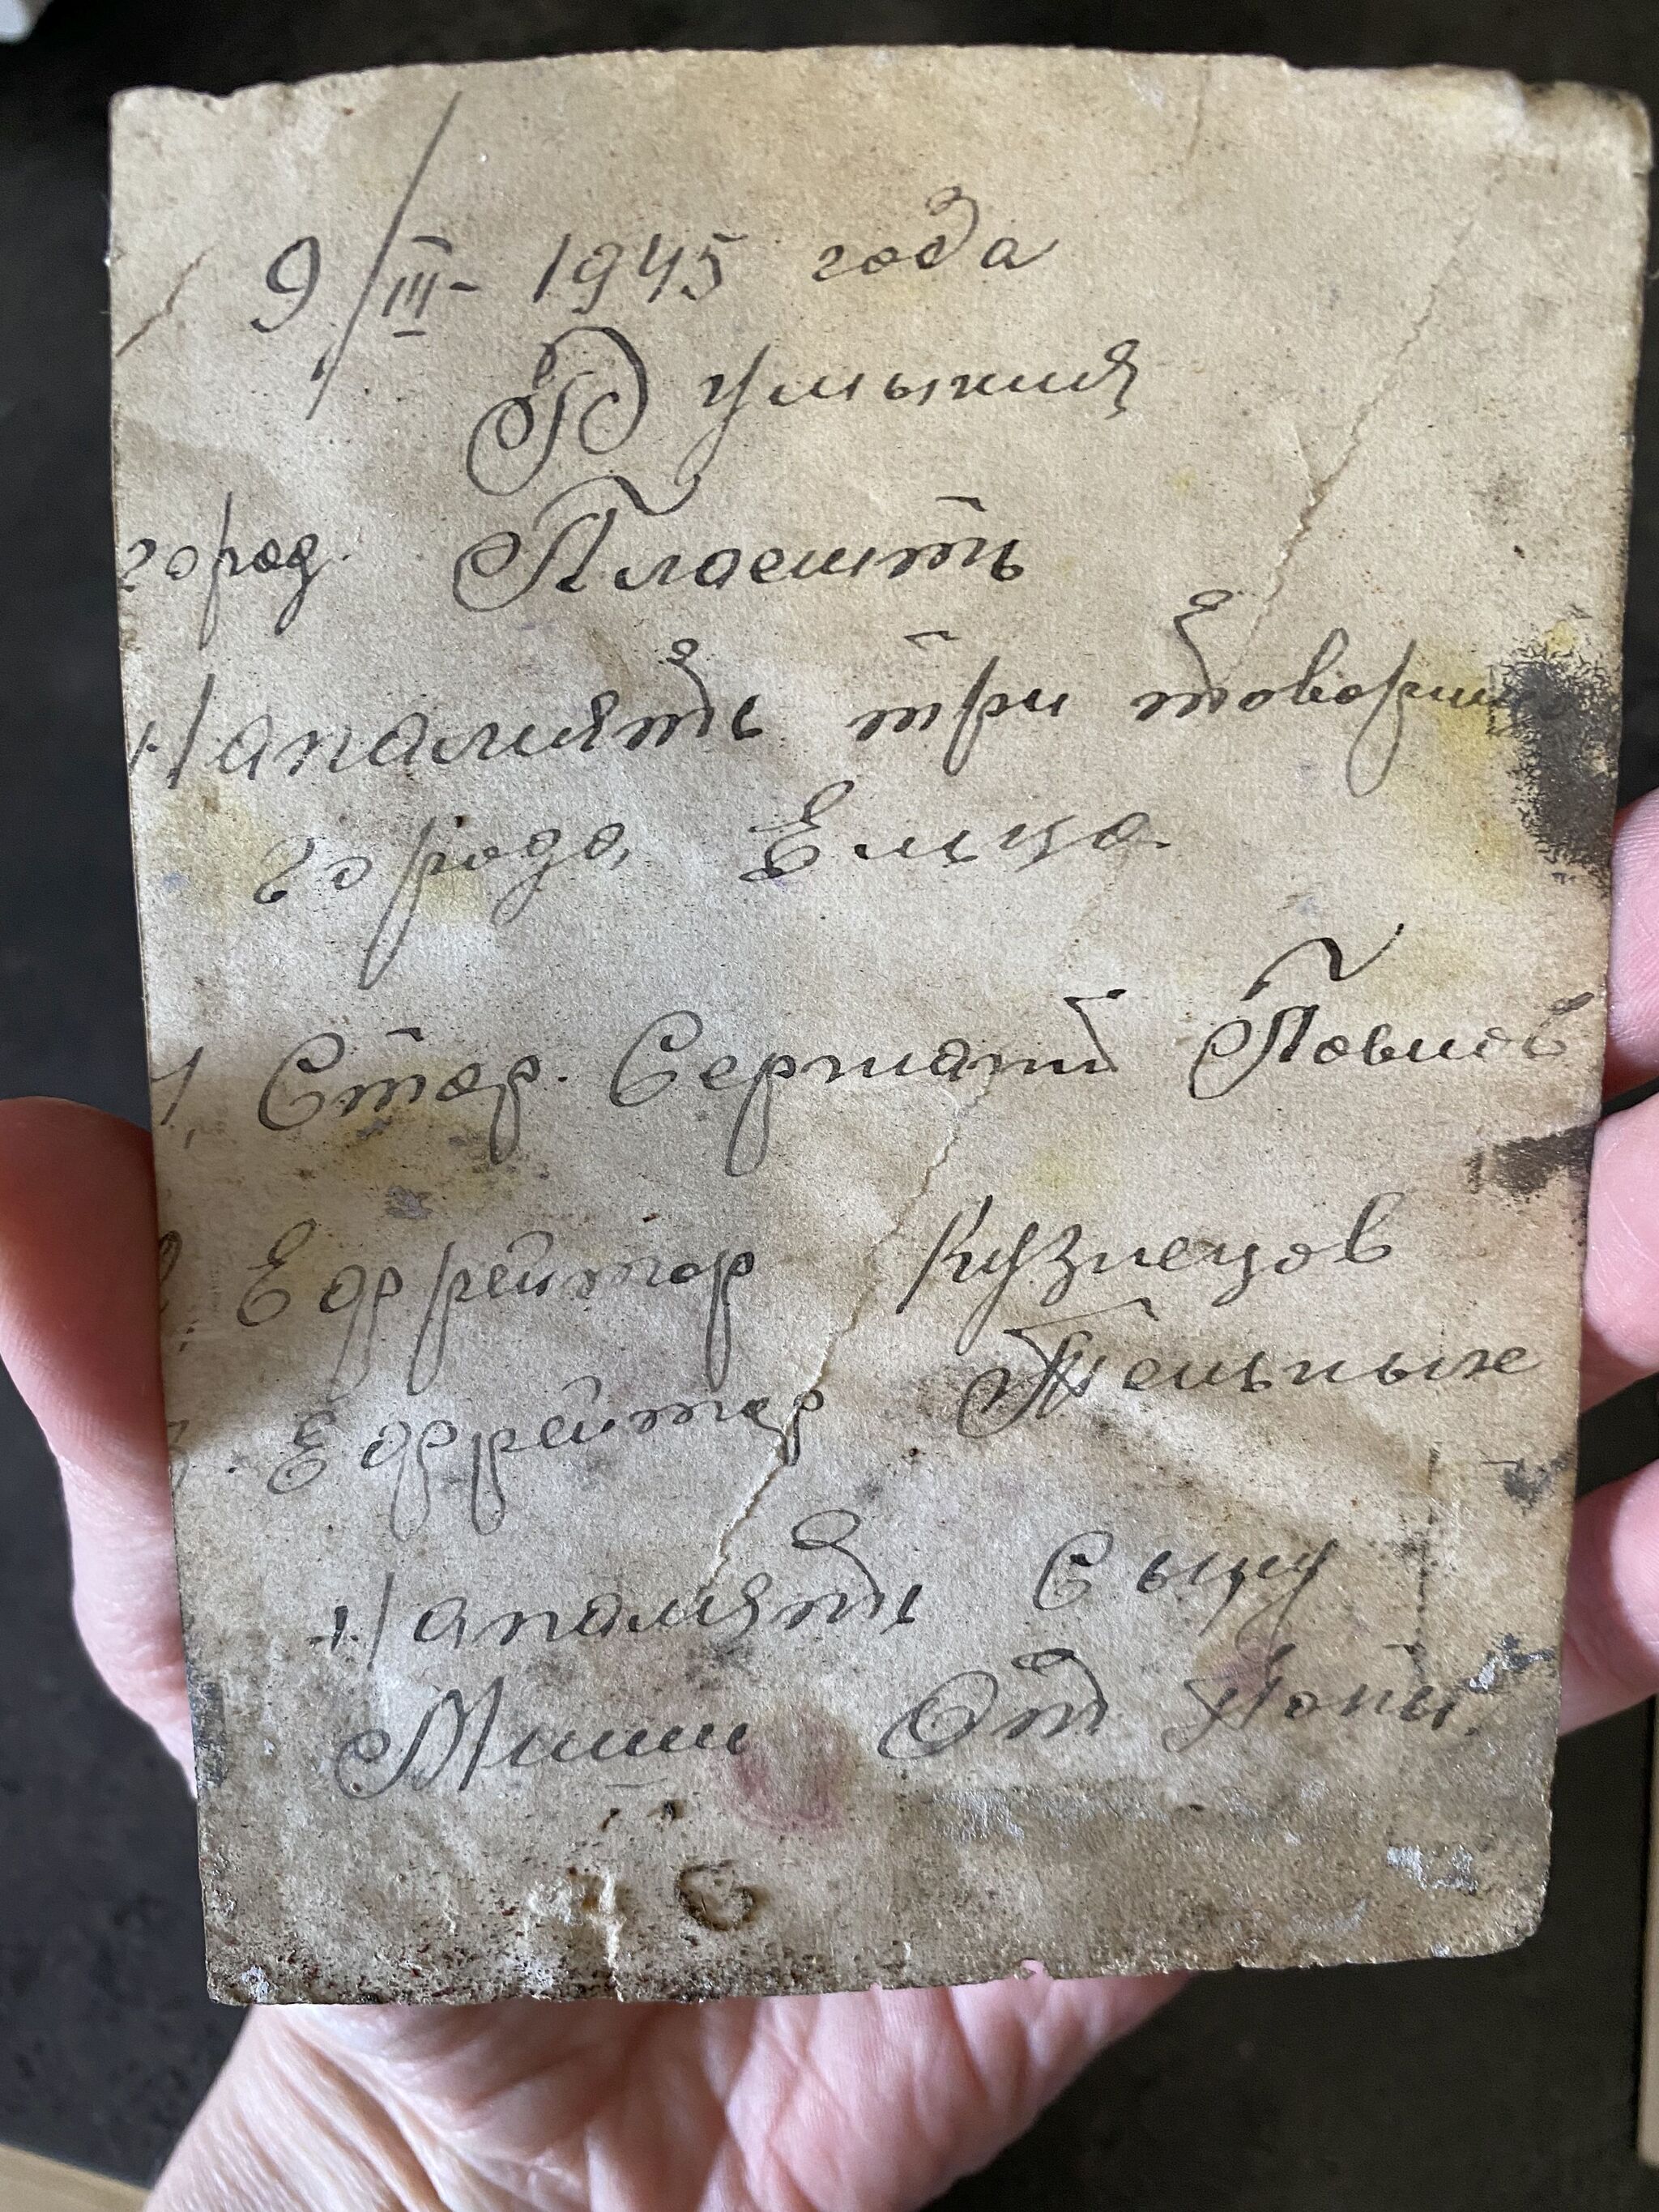 9/III- 1945 года
Румыния
город. Плоешть
На память три товорищ
города Ельца.
1. Стар. Сержант Павлов
2. Ефрейтор Кузнецов
3. Ефрейтор Тельных
На память Сыну
Миши От Папы.